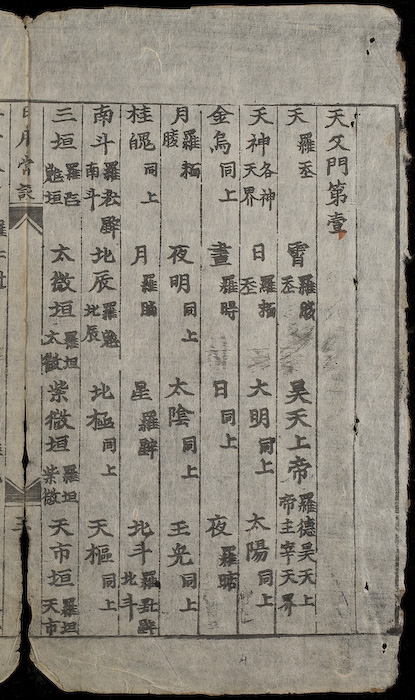 天文門第壹
天 羅丕 霄 羅丕 昊天上帝 羅德昊天上帝主宰天界
天神 各神天界 日 羅丕 大明 同上 太陽 同上
金烏 同上 晝 羅 日 同上 夜 羅
月 羅 夜明 同上 太陰 同上 玉兔 同上
桂魄 同上 月 羅 星 羅 北斗 羅北斗
南斗 羅南斗 北辰 羅北辰 北極 同上 天樞 同上
三垣 羅垣 太微垣 羅垣太微 紫微垣 羅垣紫微 天市垣 羅垣天市
日用常談